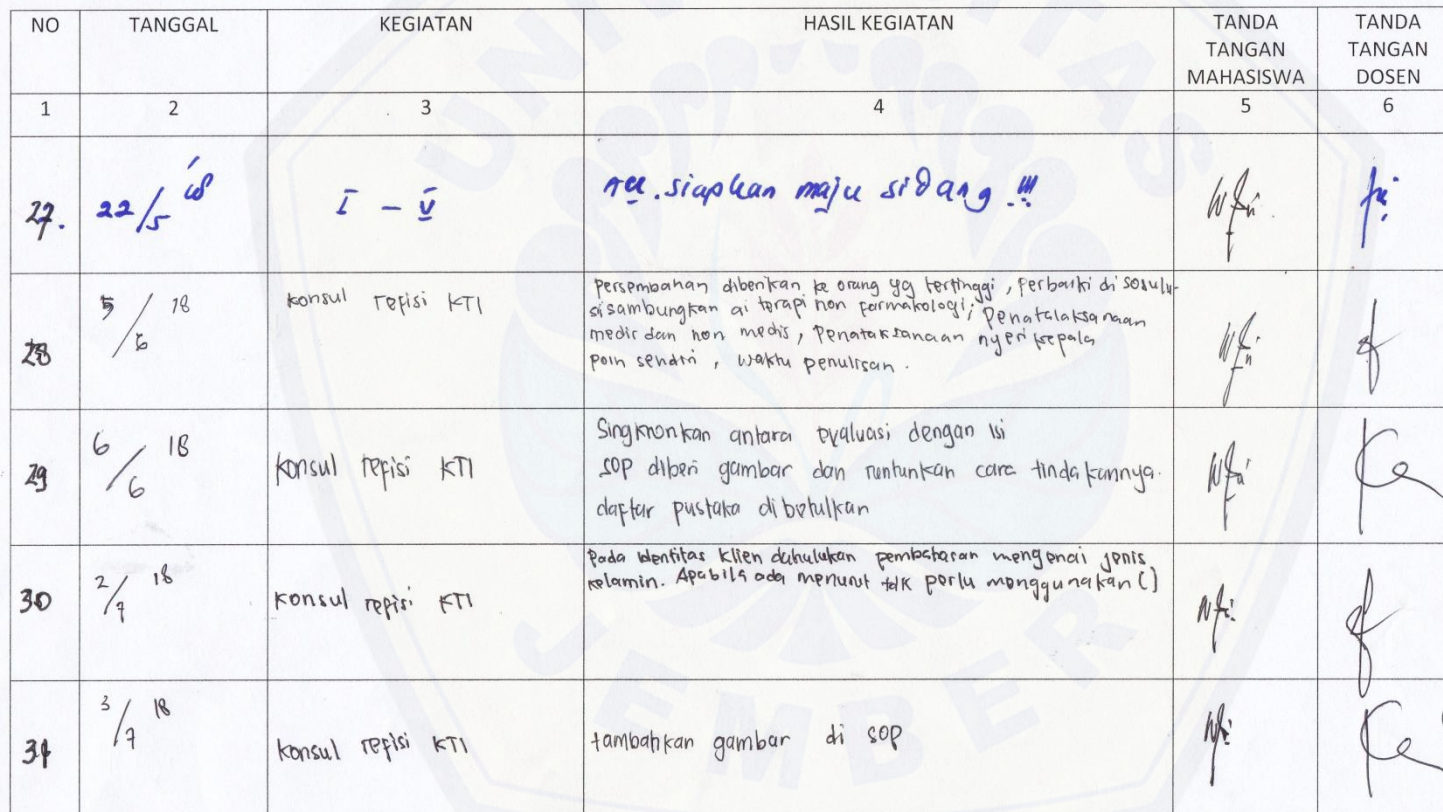 NO TANGGAL KEGIATAN HASIL KEGIATAN TANDA TANGAN MAHASISWA TANDA TANGAN DOSEN
1 2 3 4 5 6
27. 22/5 18 I - V acc. siapkan maju sidang !!!
28 5/6 18 konsul refisi KTI persembahan diberikan ke orang yg tertinggi, perbaiki di
disambungkan di terapi non farmakologi; penatalaksanaan
medis dan non medis, penataksanaan nyeri kepala
poin sendiri, waktu penulisan.
29 6/6 18 konsul refisi KTI Singkronkan antara evaluasi dengan isi
SOP diberi gambar dan runtunkan cara tindakannya.
daftar pustaka dibetulkan
30 2/7 18 konsul refisi KTI Pada identitas klien dahulukan pembahasan mengenai jenis
kelamin. Apabila ada menurut tdk perlu menggunakan ()
31 3/7 18 konsul refisi KTI tambahkan gambar di SOP
UNIVERSITAS
JEMBER